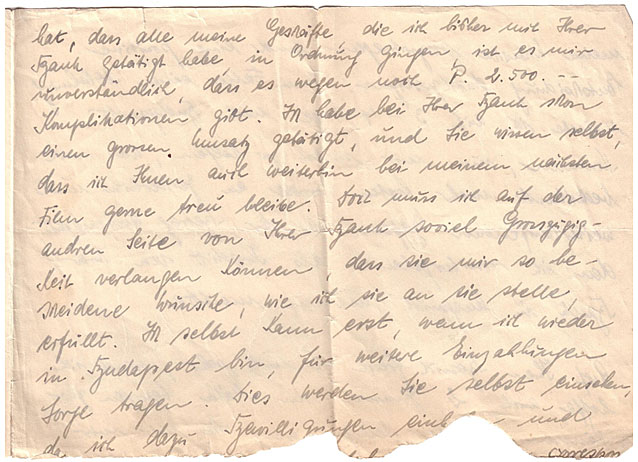 hat, dass alle meine Geschäfte die ich bisher mit Ihrer
Bank getätigt habe, in Ordnung gingen, ist es mir
unverständlich, dass es wegen noch P. 2.500.---
Komplikationen gibt. Ich habe bei Ihrer Bank schon
einen grossen Umsatz getätigt, und Sie wissen selbst,
dass ich Ihnen auch weiterhin bei meinem nächsten
Film gerne treu bleibe. Doch muss ich auf der
andren Seite von Ihrer Bank soviel Grosszügig-
keit verlangen können, dass sie mir so be-
scheidene wünsche, wie ich sie an sie stelle,
erfüllt. Ich selbst kann erst, wenn ich wieder
in Budapest bin, für weitere Einzahlungen
Sorge tragen. Dies werden Sie selbst einsehen,
da ich dazu Bewilligungen und